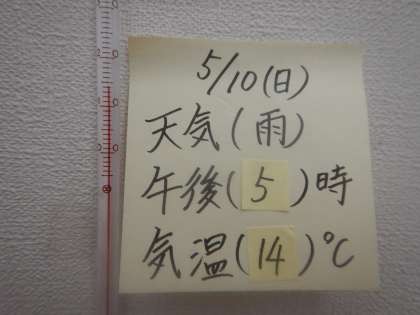 5/10(日)
天気(雨)
午後(5)時
気温(14)℃